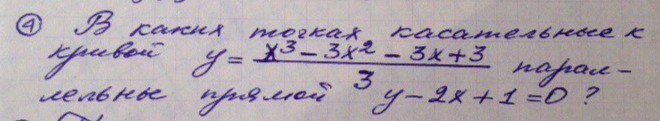 ④ В каких точках касательные к
кривой y = (x³ - 3x² - 3x + 3)/3 парал-
лельные прямой y - 2x + 1 = 0 ?